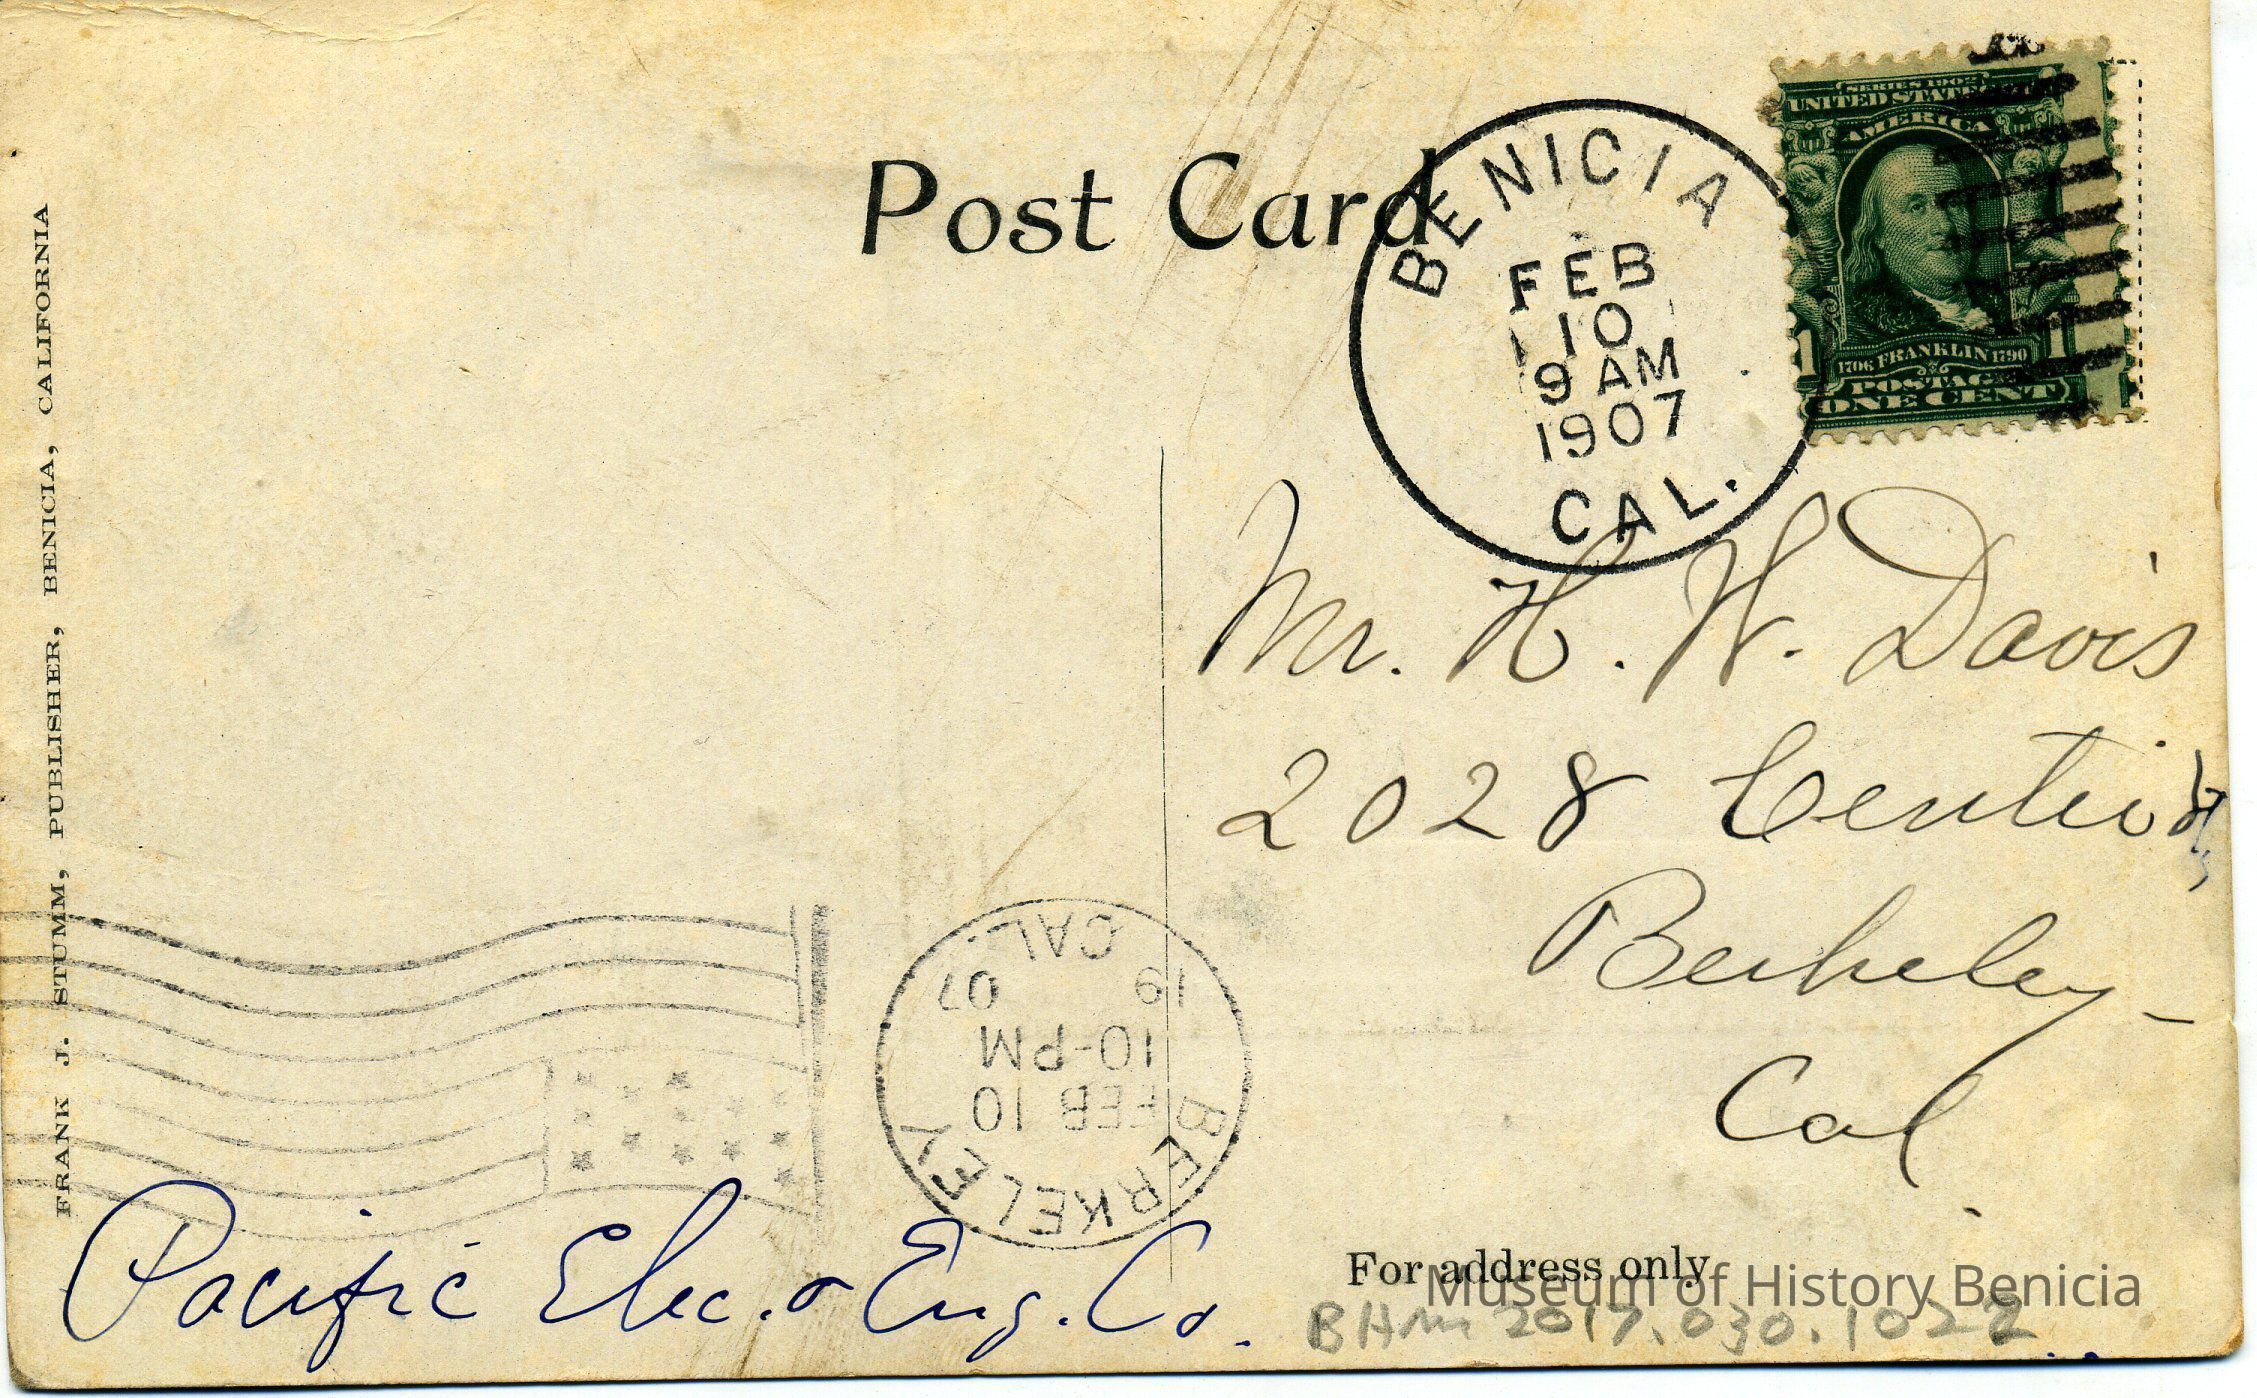 Post Card
BENICIA
FEB
10
9 AM
1907
CAL.
SERIES 1902
UNITED STATES
AMERICA
1706 FRANKLIN 1790
1 1
POSTAGE
ONE CENT
Mr. H. W. Davis
2028 Center St
Berkeley -
Cal
FRANK J. STUMM, PUBLISHER, BENICIA, CALIFORNIA
BERKELEY
FEB 10
10-PM
19 07
CAL.
Pacific Elec. & Eng. Co.
For address only
Museum of History Benicia
BHM 2017.030.1022